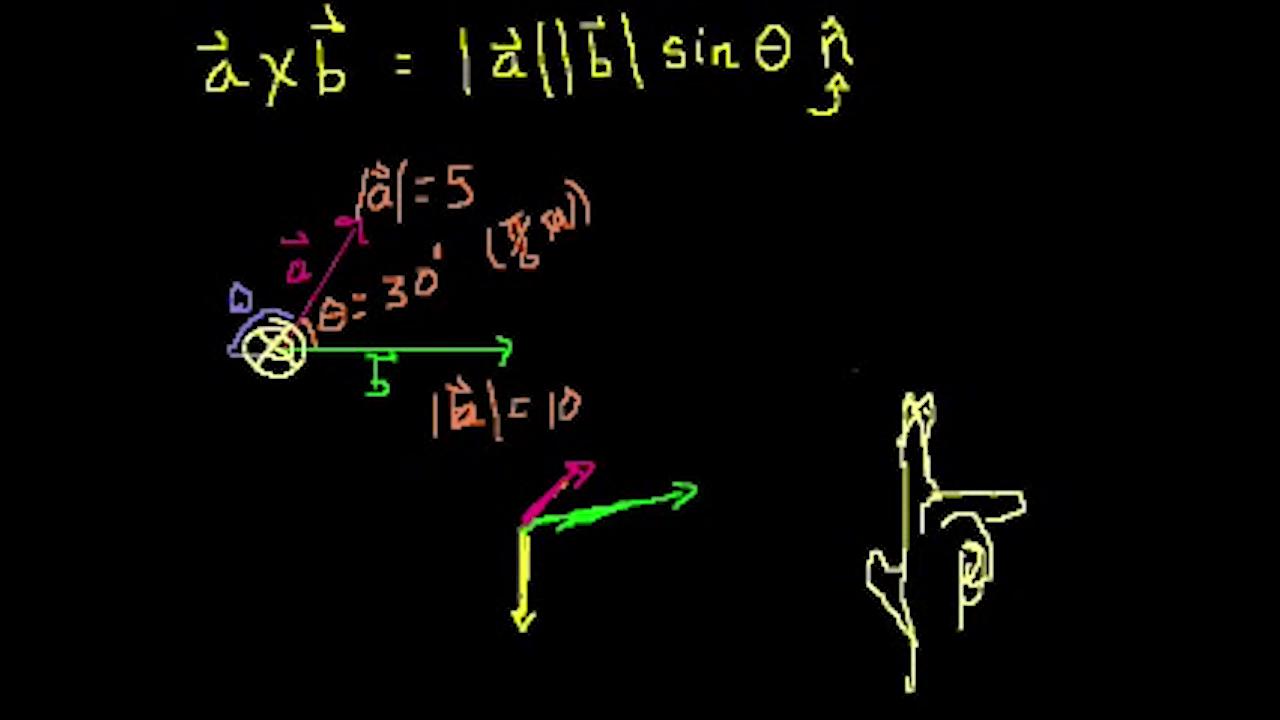 a⃗ × b⃗ = |a⃗||b⃗| sin θ n̂
|a⃗| = 5
a⃗
θ = 30°
(π/6 rad)
b⃗
|b⃗| = 10